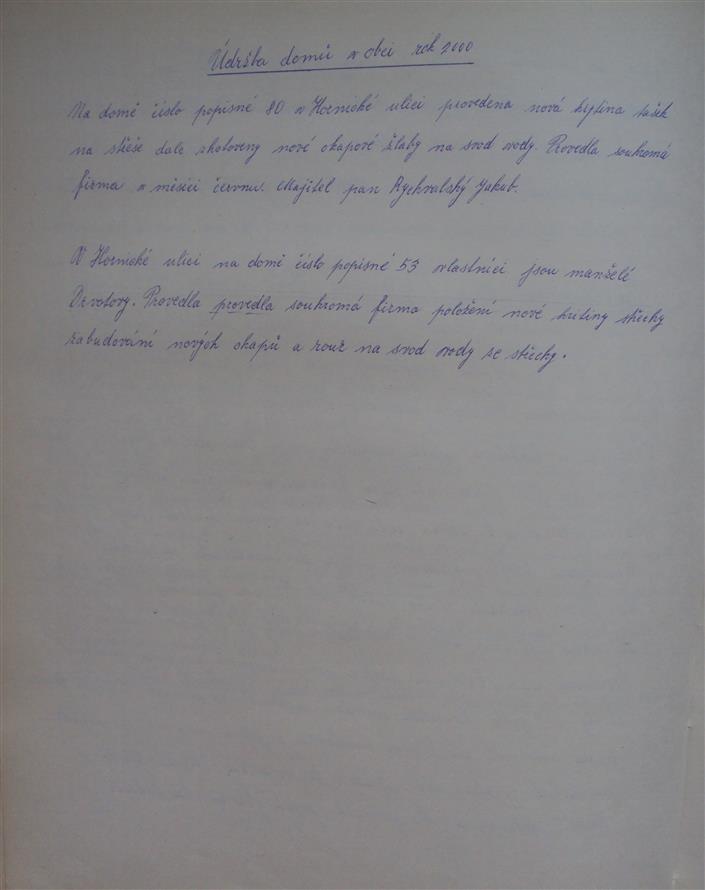 Údržba domů v obci rok 2000
Na domě číslo popisné 80 v Hornické ulici provedena nová kytina tašek
na střeše dale zhotoveny nové okapové žlaby na svod vody. Provedla soukromá
firma v měsíci červnu. Majitel pan Rychvalský Jakub.
V Hornické ulici na domě číslo popisné 53 vlastníci jsou manželé
Drvotovy. Provedla provedla soukromá firma položení nové kritiny střechy
zabudování nových okapů a rour na svod vody ze střechy.